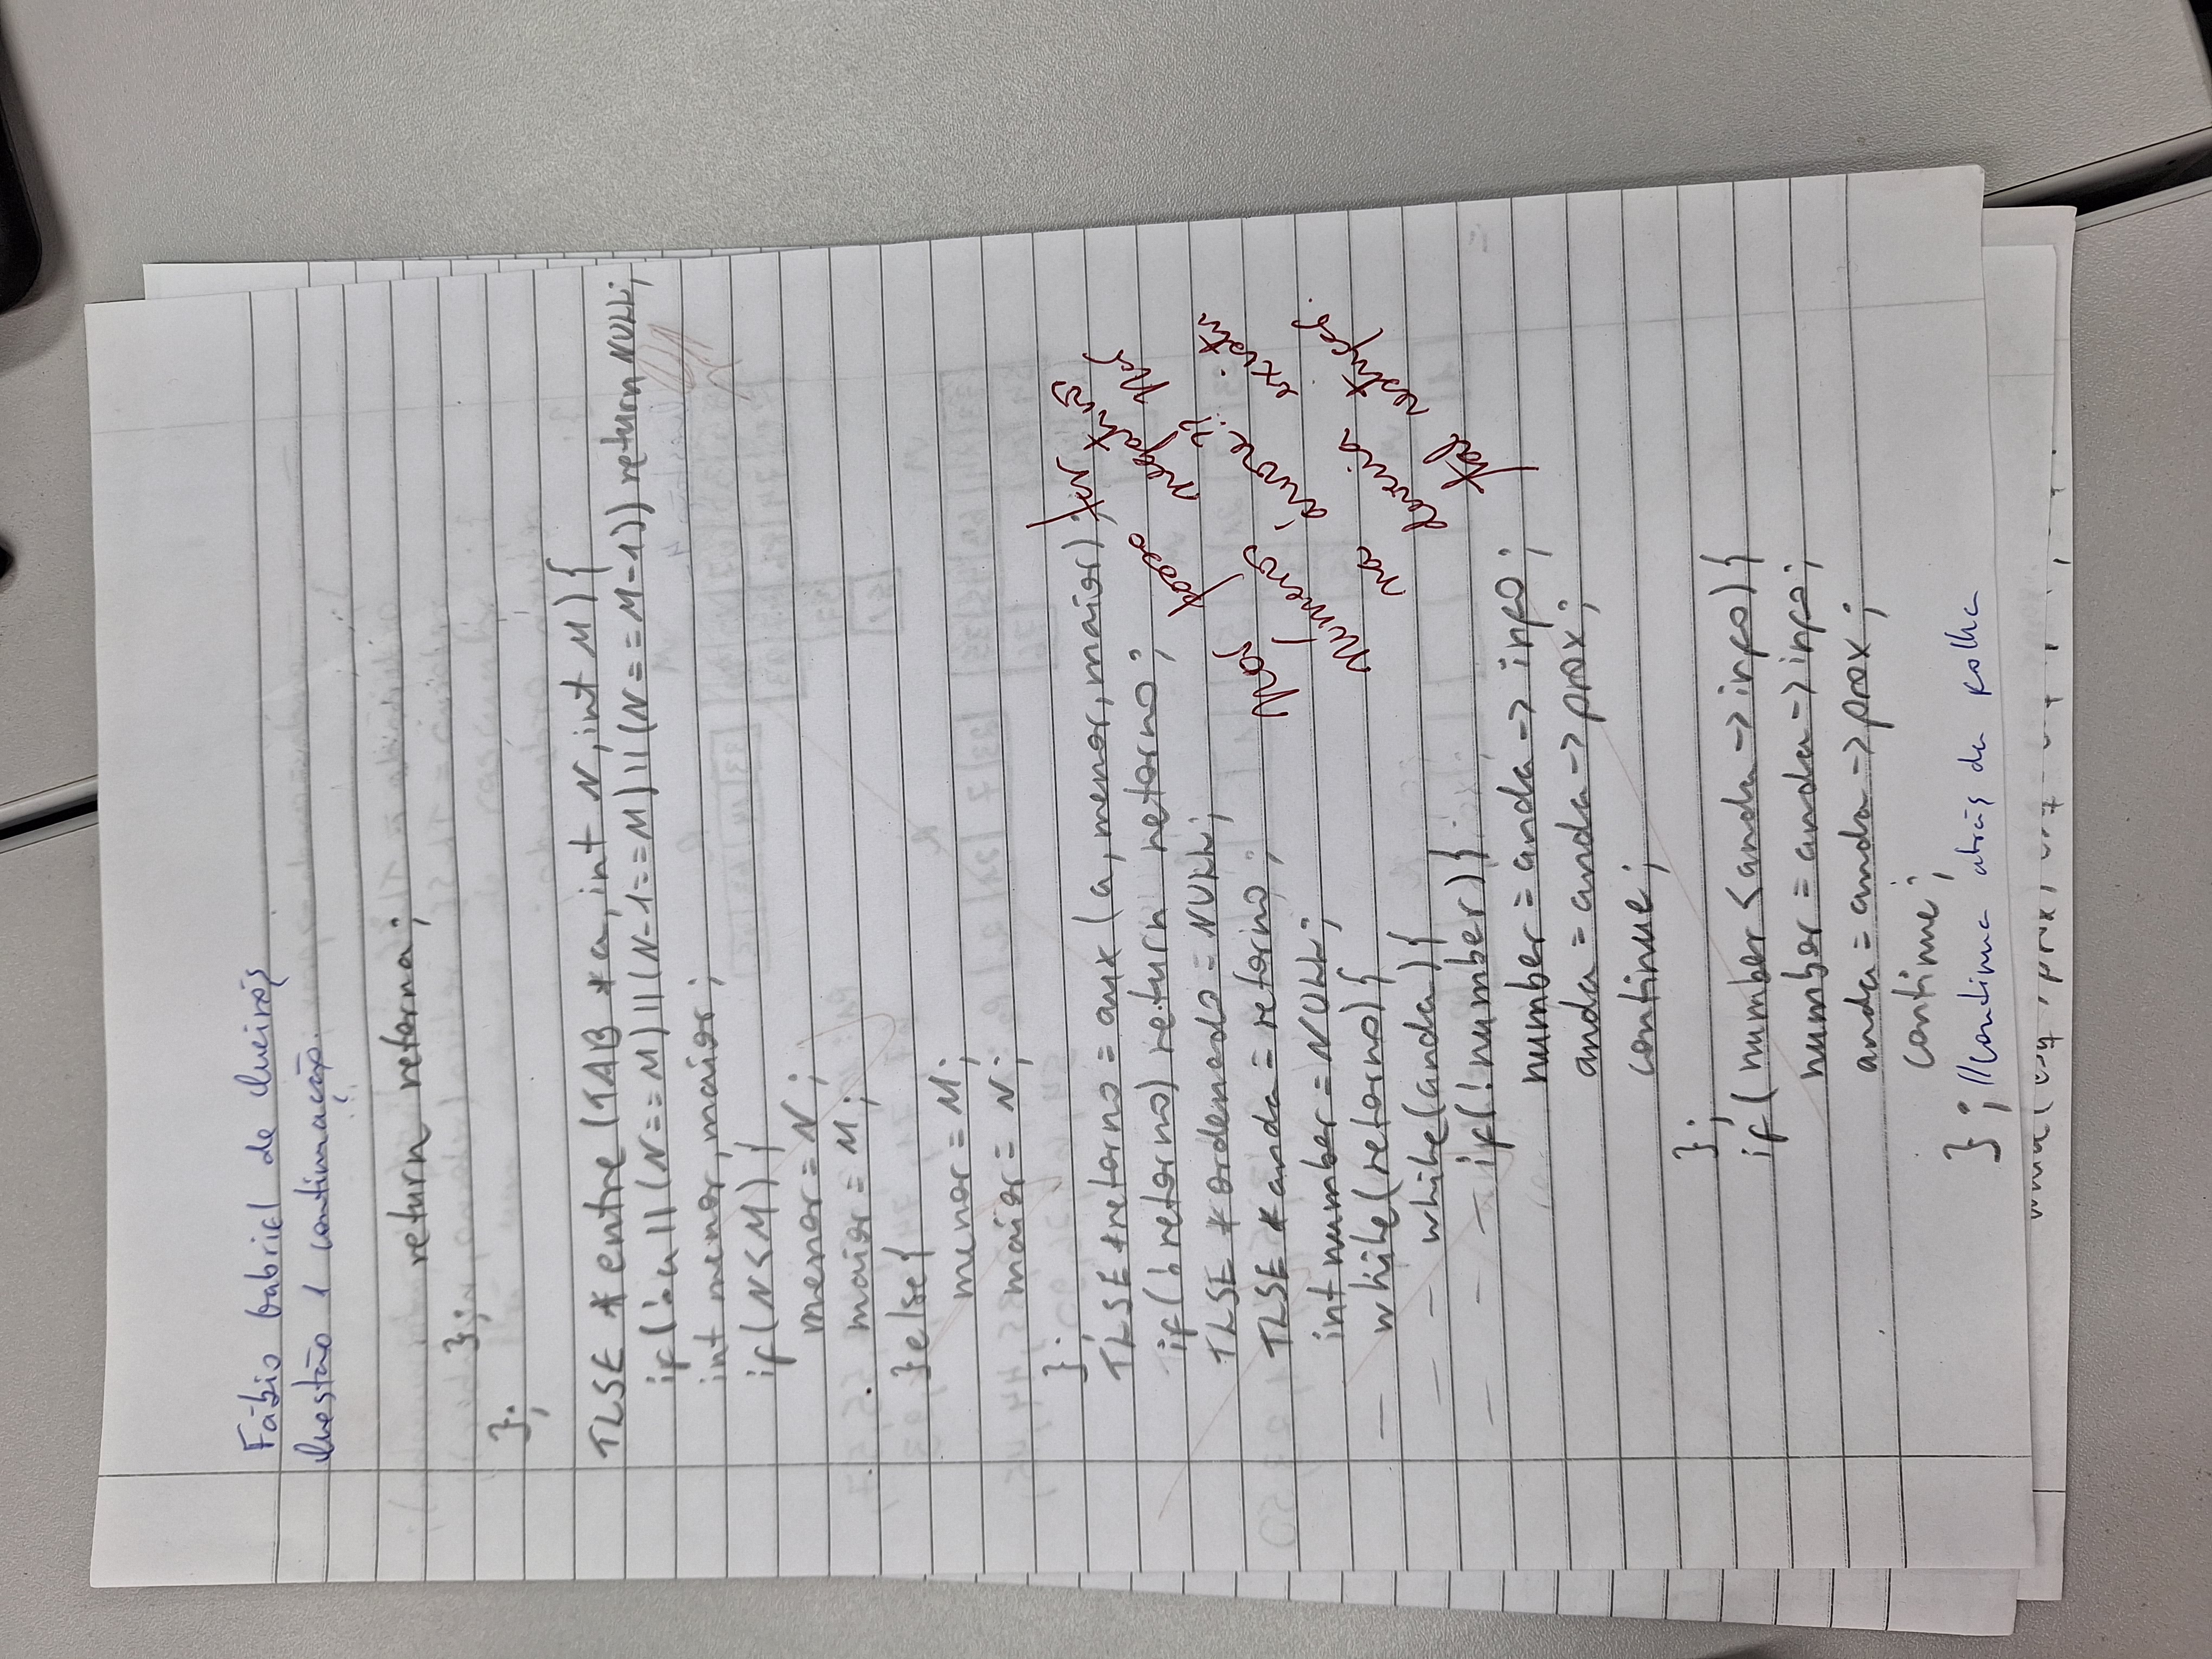 Fábio Gabriel de Queirós
Questão 1 continuação.
return retorna;
};
};
TLSE * entre (TAB * a, int N, int M) {
if(!a || (N==M) || (N-1==M) || (N==M-1)) return NULL;
int menor, maior;
if(N<M) {
menor = N;
maior = M;
}else{
menor = M;
maior = N;
};
TLSE *retorno = aux (a, menor, maior);
if(!retorno) return retorno;
TLSE * ordenado = NULL;
TLSE * anda = retorno;
int number = NULL;
while(retorno){
while(anda){
if(!number){
number = anda -> info;
anda = anda -> prox;
continue;
};
if( number < anda -> info) {
number = anda -> info;
anda = anda -> prox;
continue;
}; //continua atrás da folha
Não posso ter
números negativos
na árvore?? Não
deveria existir
tal restrição.